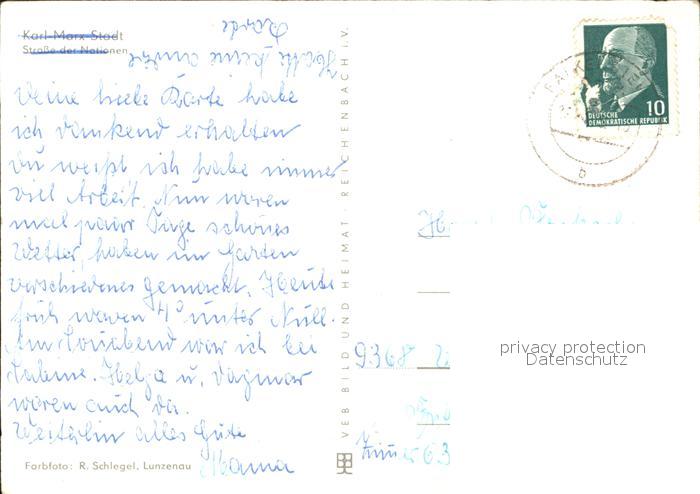 Karl-Marx-Stadt
Straße der Nationen
Hatte keine andre
Karte
Deine liebe Karte habe
ich dankend erhalten
Du weißt, ich habe immer
viel Arbeit. Nun waren
mal paar Tage schönes
Wetter, haben im Garten
verschiedenes gemacht. Heute
früh waren 4° unter Null.
Am Sonnabend war ich bei
Sabine. Helga u. Dagmar
waren auch da.
Weiterhin alles Gute
Mama
Farbfoto: R. Schlegel, Lunzenau
VEB BILD UND HEIMAT REICHENBACH i.V.
10
DEUTSCHE
DEMOKRATISCHE REPUBLIK
b
9368
privacy protection
Datenschutz
63